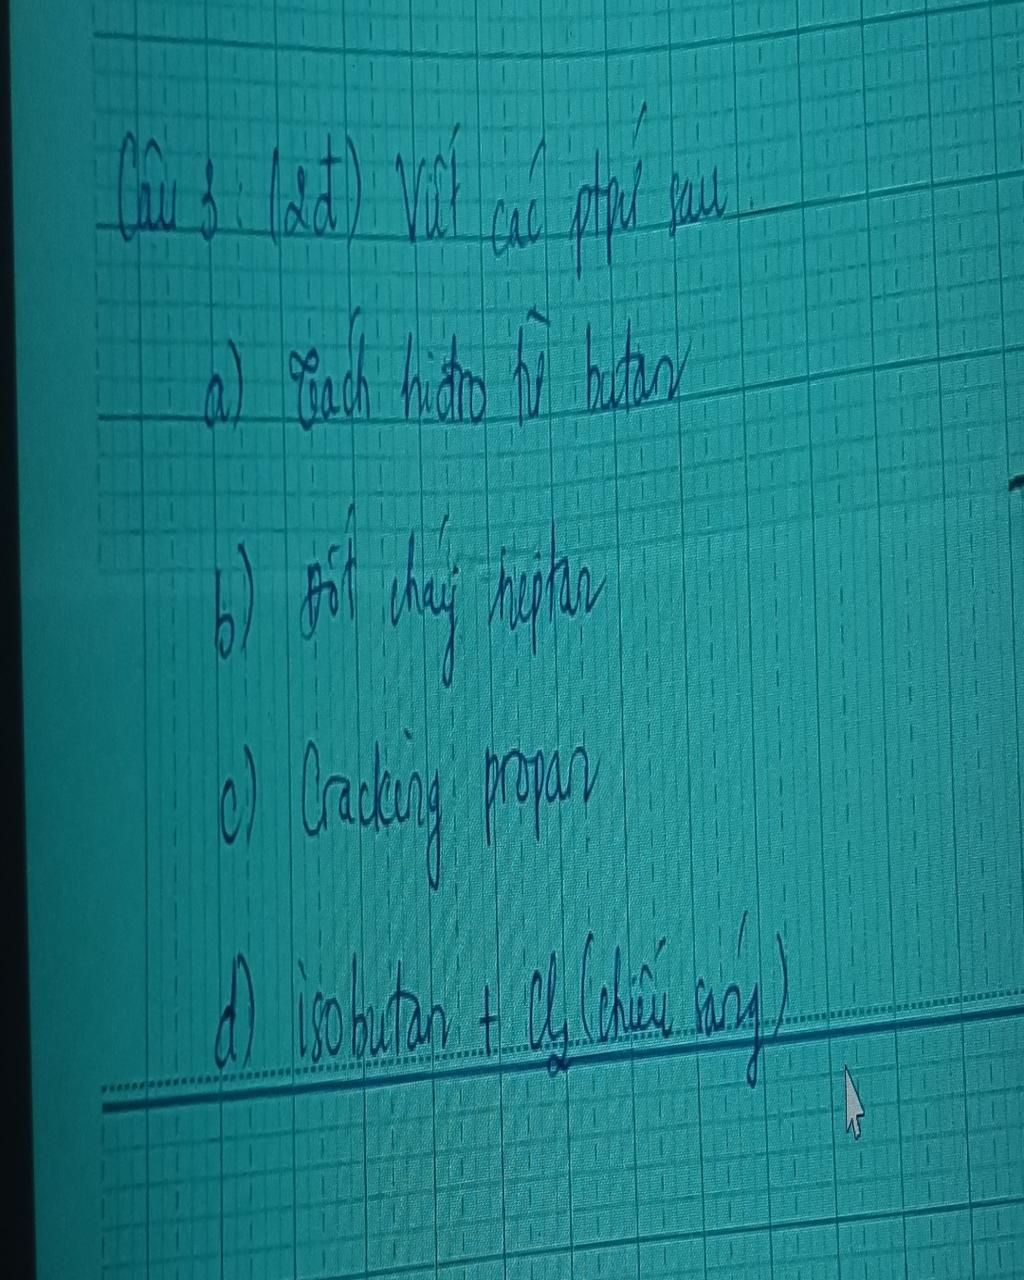 Câu 3: (2đ) Viết các ptpứ sau.
a) Tách hidro từ butan
b) Đốt cháy heptan
c) Cracking propan
d) isobutan + Cl₂ (chiếu sáng)